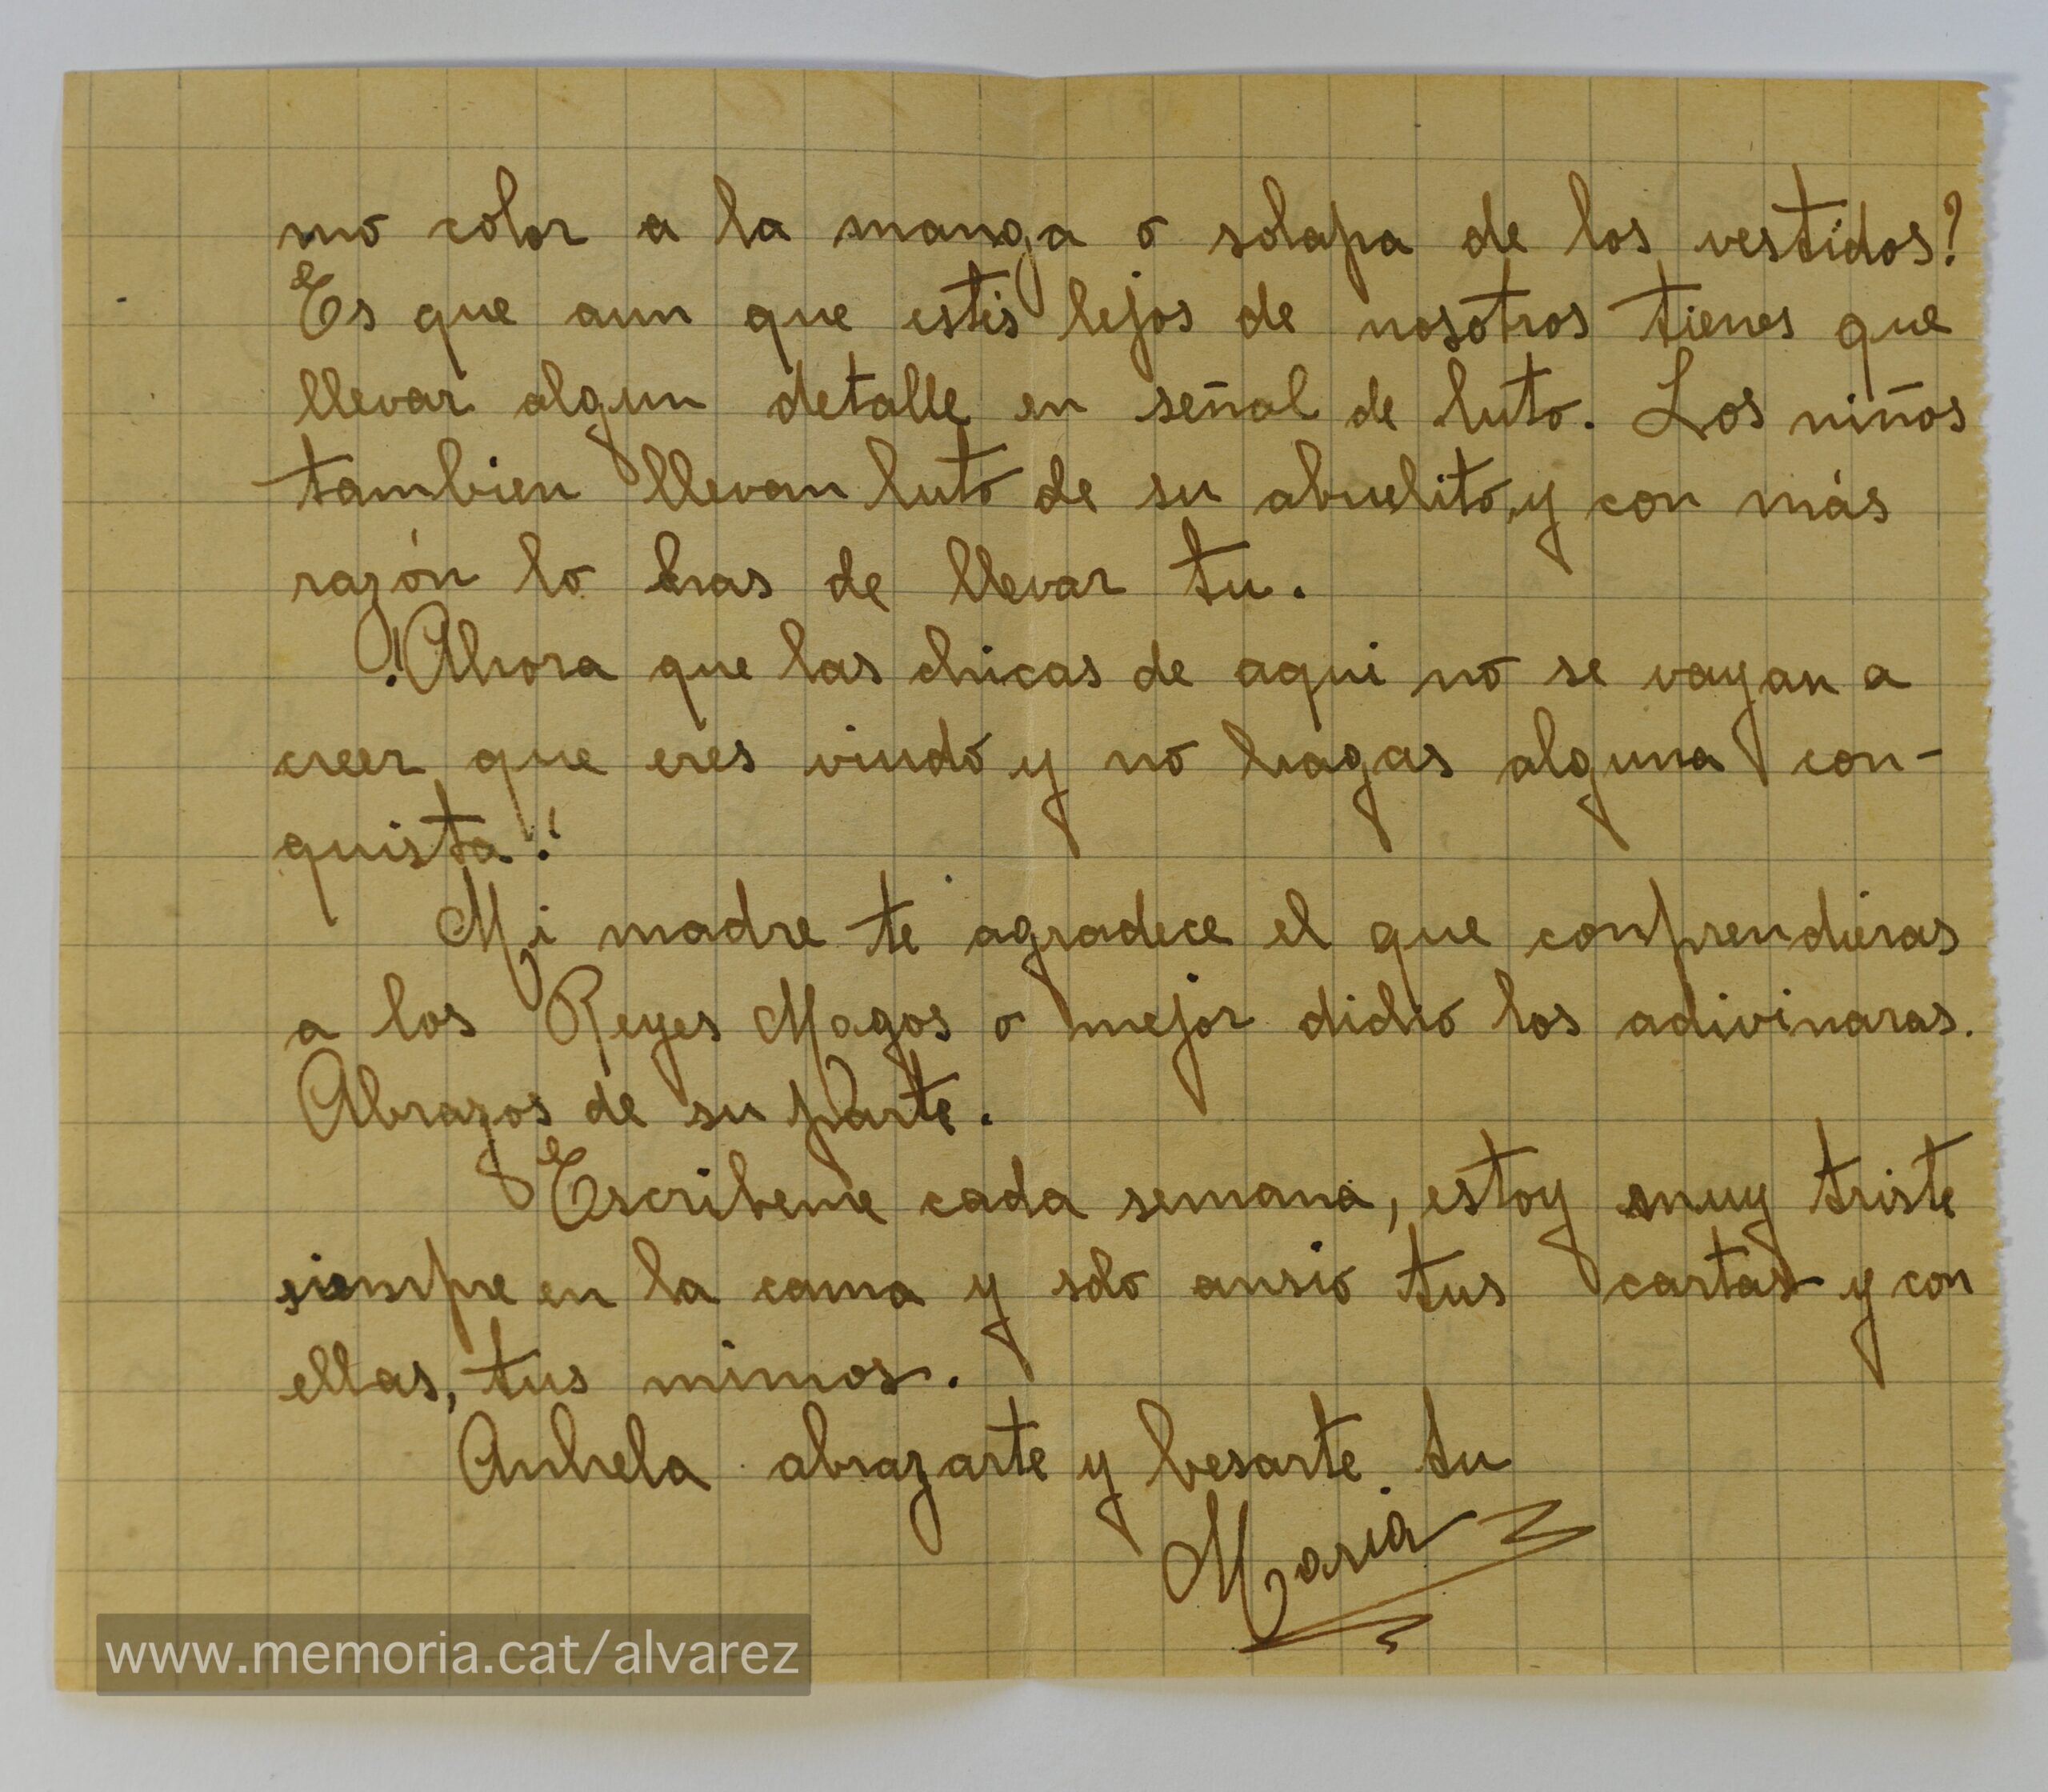 mo color a la manga o solapa de los vestidos?
Es que aun que estés lejos de nosotros tienes que
llevar algun detalle en señal de luto. Los niños
tambien llevan luto de su abuelito, y con más
razón lo has de llevar tu.
¡Ahora que las chicas de aqui no se vayan a
creer que eres viudo y no hagas alguna con-
quista!
Mi madre te agradece el que comprendieras
a los Reyes Magos o mejor dicho los adivinaras.
Abrazos de su parte.
Escribeme cada semana, estoy muy triste
siempre en la cama y solo ansio tus cartas y con
ellas, tus mimos.
Anhela abrazarte y besarte tu
Maria
www.memoria.cat/alvarez